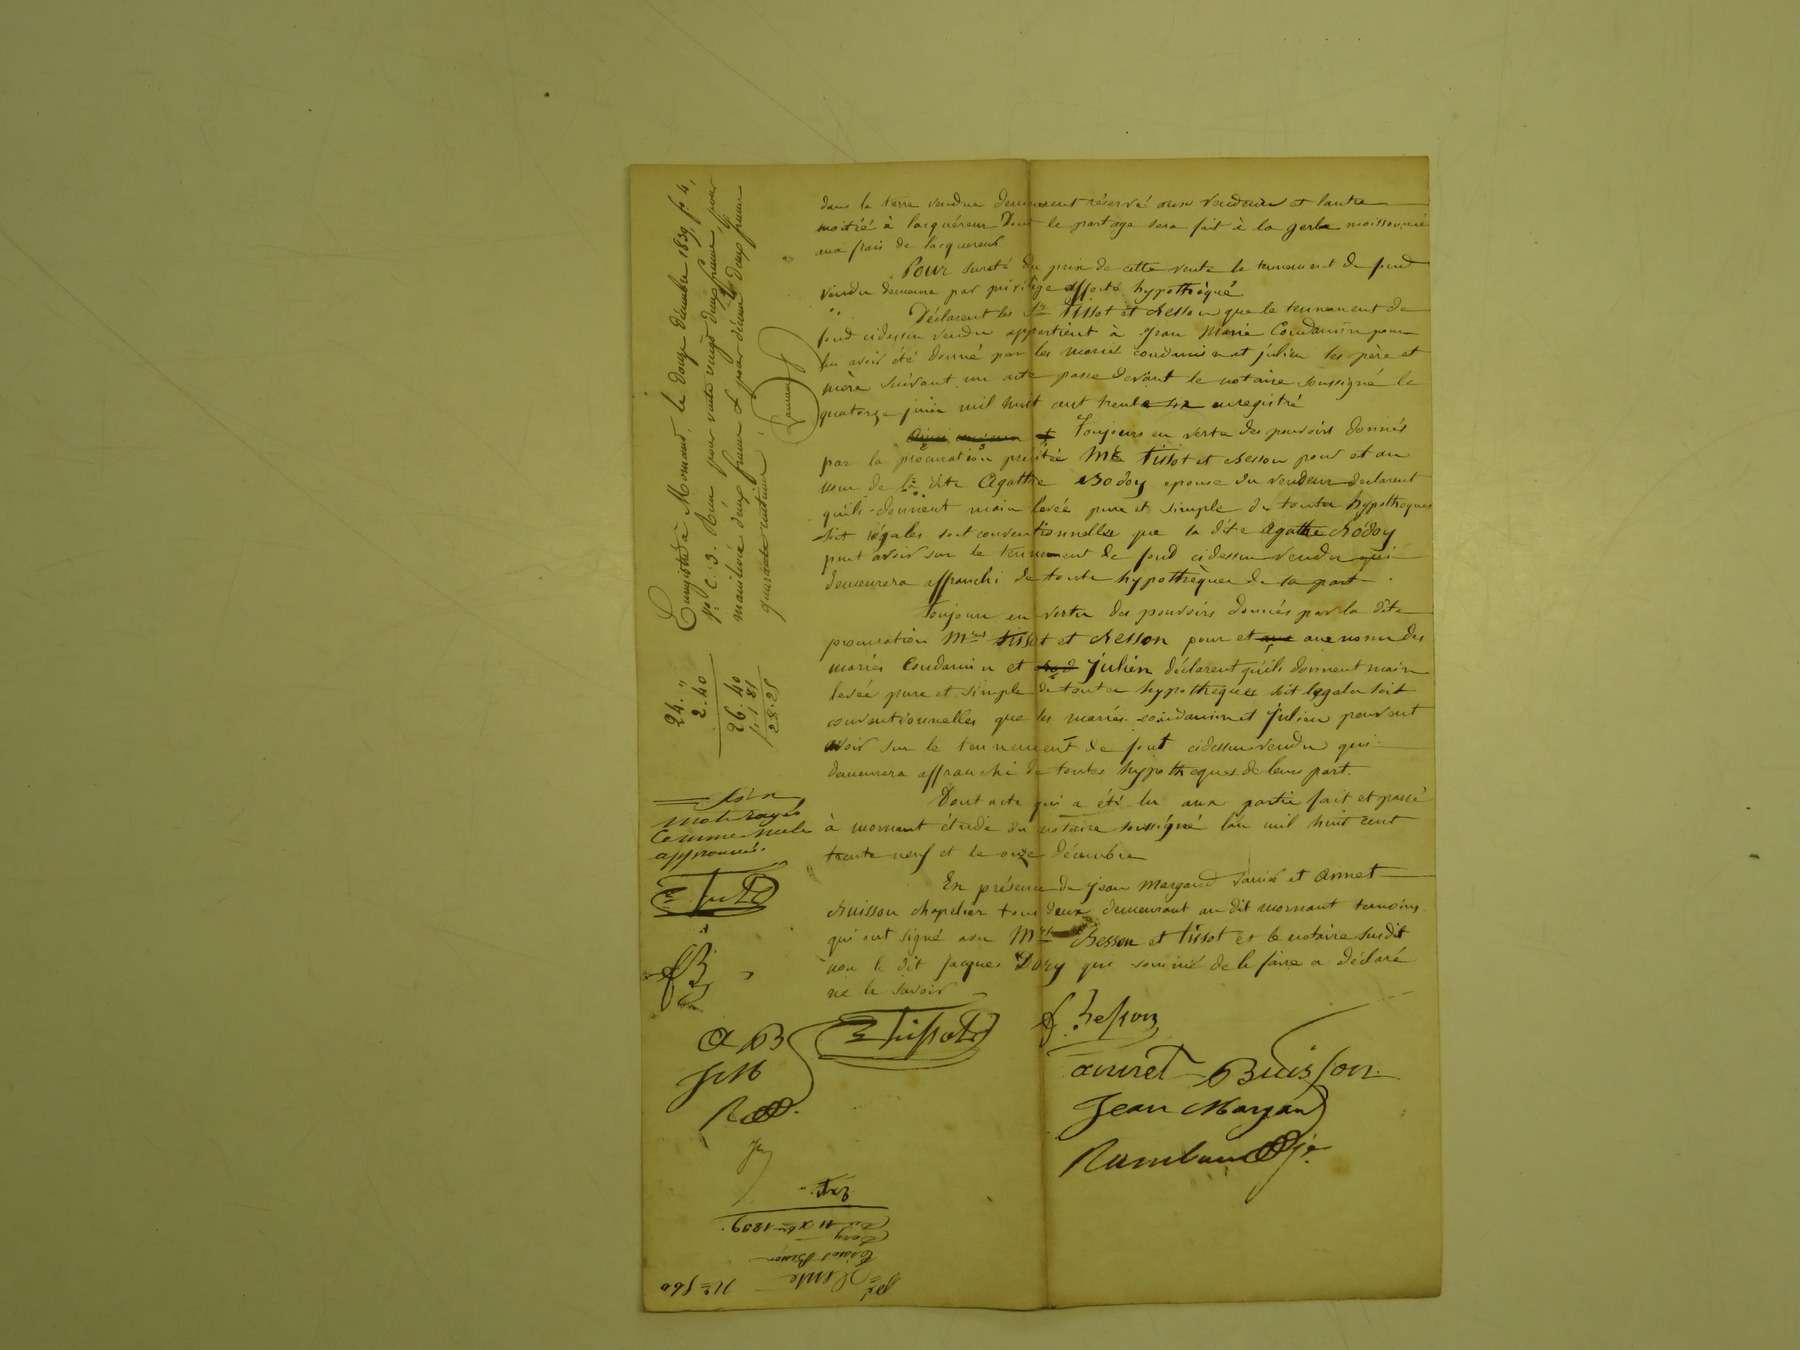 dans la terre vendue demeurent réservé aux vendeurs et lautre
moitié à lacquéreur Dont le partage sera fait à la gerbe moissonnée
aux frais de lacquereur
Pour sureté du prix de cette vente le tennement de fond
vendu demeure par privilège affecté hypothéqué
Déclarent les Srs Tissot et Besson que le tennement de
fond cidessus vendu appartient à Jean Marie Condamin pour
lui avoir été donné par les mariés condamin et julien ses père et
mère suivant un acte passé devant le notaire soussigné le
quatorze juin mil huit cent trente six enregistré
Toujours en vertu des pouvoirs donnés
par la procuration précitée Mrs Tissot et Besson pour et au
nom de la dite Agathe Bodoy epouse du vendeur declarent
qu'ils donnent main levée pure et simple de toutes hypotheques
soit légales soit conventionnelles que la dite Agathe Bodoy
peut avoir sur le tennement de fond cidessus vendu qui
demeurera affranchi de toute hypothèques de sa part.
Toujours en vertu des pouvoirs donnés par la dite
procuration Mrs Tissot et Besson pour et aux noms des
mariés Condamin et Julien déclarent qu'ils donnent main
levée pure et simple de toutes hypothèques soit legales soit
conventionnelles que les mariés condamin et Julien peuvent
avoir sur le tennement de font cidessus vendu qui
demeurera affranchi de toutes hypotheques de leur part.
Dont acte qui a été lu aux partie fait et passé
à mornant étude du notaire soussigné l'an mil huit cent
trente neuf et le onze décembre
En présence de Jean Margaud et Annet
Buisson chapelier tous deux demeurant au dit mornant temoins
qui ont signé avec Mrs Besson et Tissot et le notaire susdit
non le dit Jacques Dory qui sommé de le faire a déclaré
ne le savoir
E Tissot
f. Besson
annet Buisson
Jean Margaud
Rambaud
Enregistré à Mornant, le douze décembre 1839, fo. 4,
ro. C. 3. Reçu pour vente vingt deux francs, pour
mainlevée deux francs & pour décime deux francs
quarante centimes
24. "
2. 40
26. 40
1. 85
28. 25
mots rayés
comme nuls
approuvés.
E Tissot
f B
A B
J M
R
No 560
Vente
Tissot Besson
Dory
Du 11 Xbre 1839.
Exp.